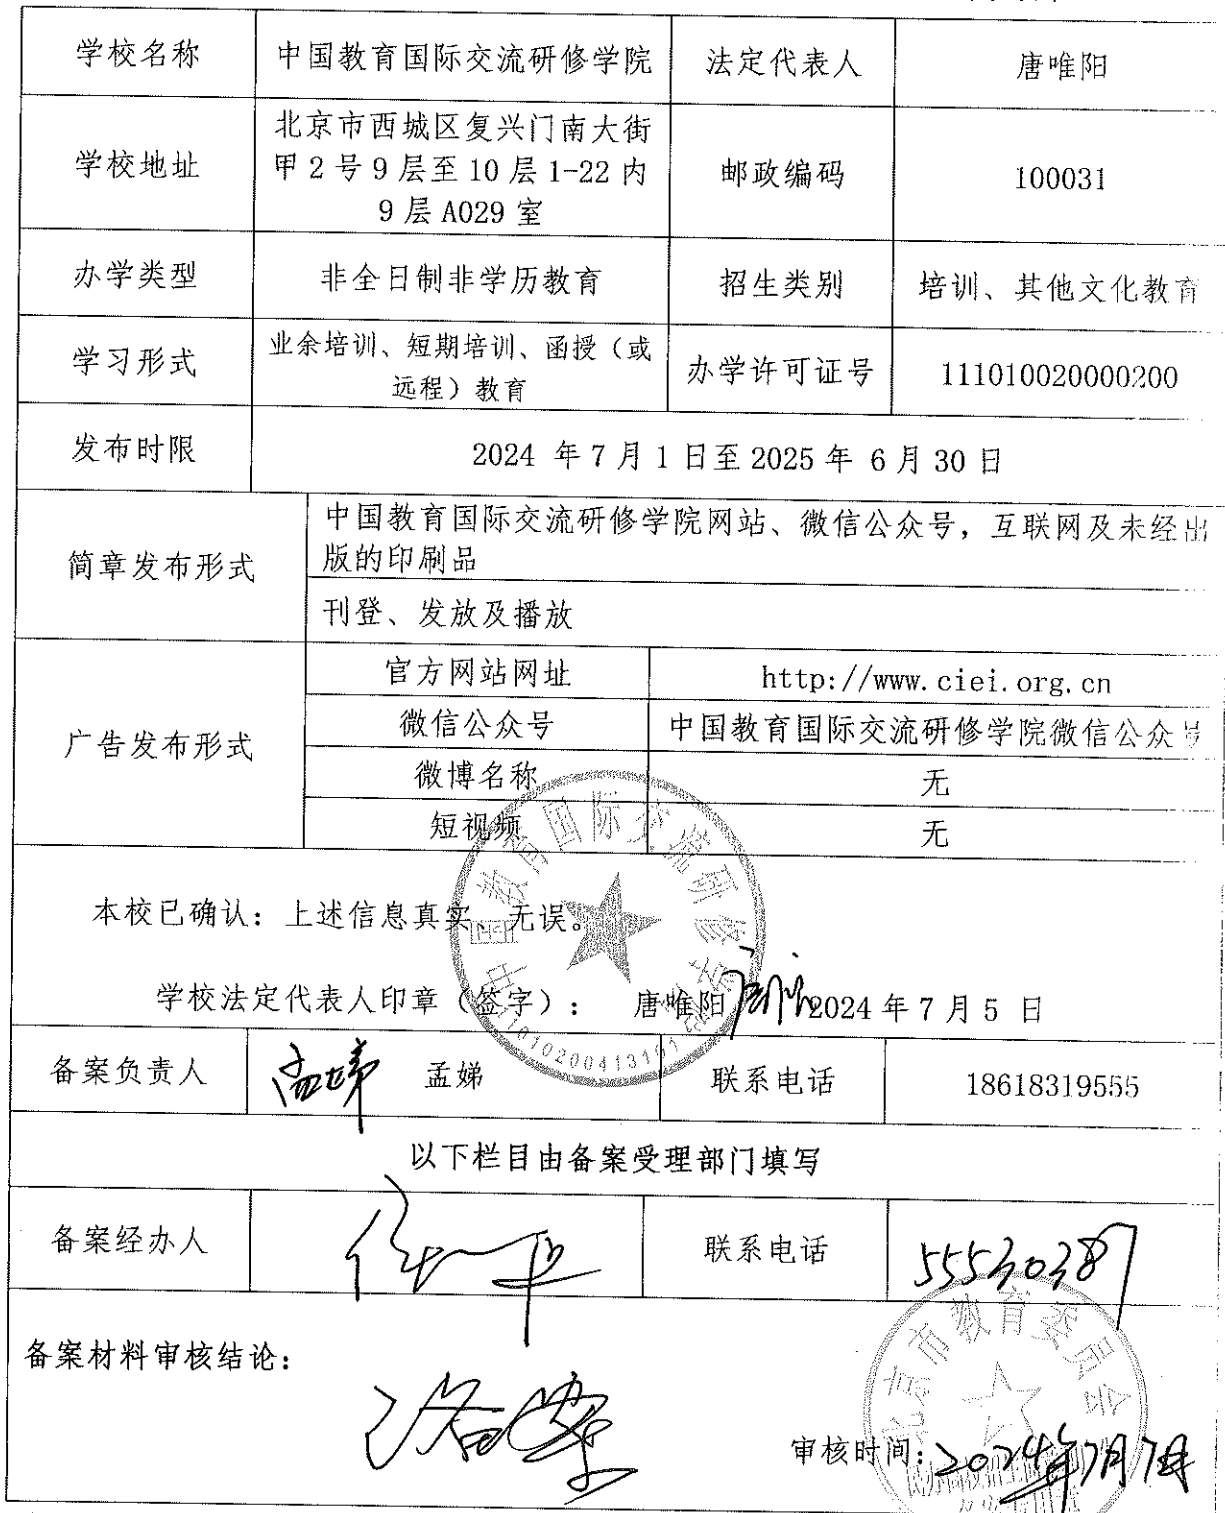 学校名称 中国教育国际交流研修学院 法定代表人 唐唯阳
学校地址 北京市西城区复兴门南大街
甲2号9层至10层1-22内
9层A029室
邮政编码 100031
办学类型 非全日制非学历教育 招生类别 培训、其他文化教育
学习形式 业余培训、短期培训、函授（或
远程）教育
办学许可证号 111010020000200
发布时限 2024 年7月1日至2025年 6月30日
简章发布形式
中国教育国际交流研修学院网站、微信公众号，互联网及未经出
版的印刷品
刊登、发放及播放
广告发布形式
官方网站网址 http://www.ciei.org.cn
微信公众号 中国教育国际交流研修学院微信公众号
微博名称 无
短视频 无
本校已确认：上述信息真实、无误。
学校法定代表人印章（签字）： 唐唯阳 2024年7月5 日
中国教育国际交流研修学院
备案负责人 孟娣 孟娣 联系电话 18618319555
以下栏目由备案受理部门填写
备案经办人 联系电话 55530387
备案材料审核结论：
已备案
审核时间：2024年7月7日
北京市教育委员会